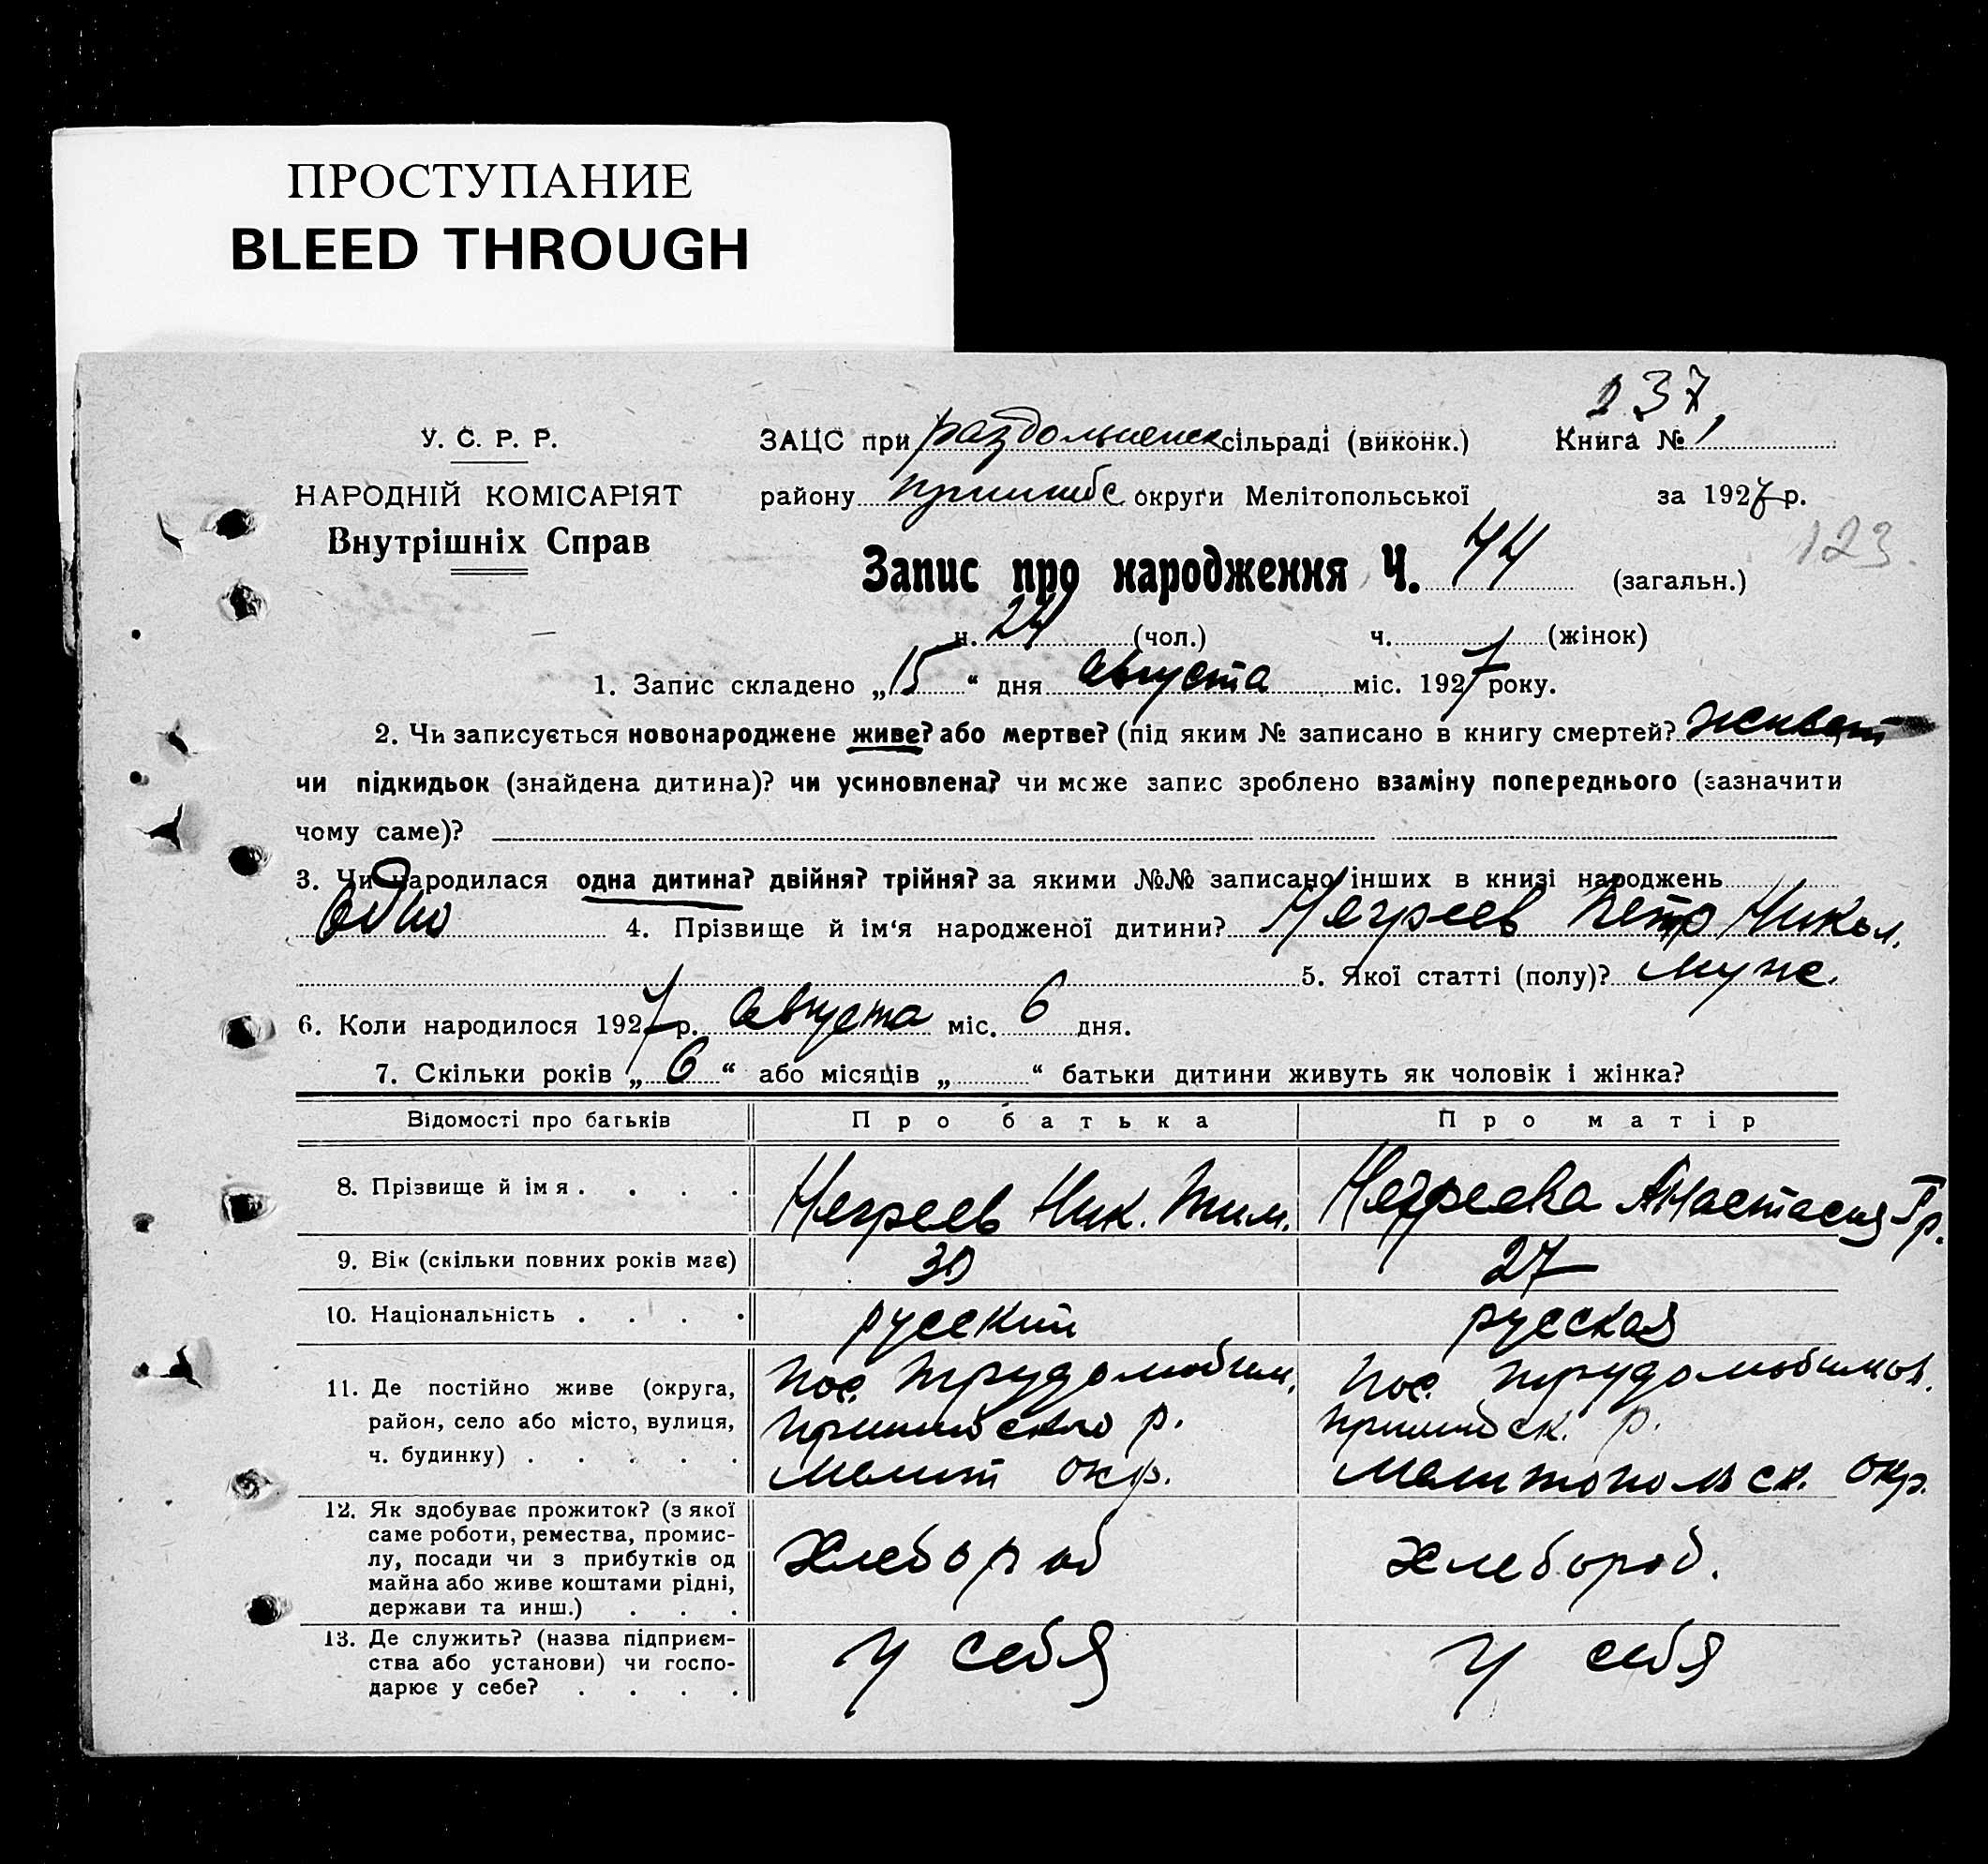 ПРОСТУПАНИЕ
BLEED THROUGH
237
У. С. Р. Р.
ЗАЦС при раздольненск сільраді (виконк.) Книга № 1
НАРОДНІЙ КОМІСАРІЯТ
району пришибс округи Мелітопольської за 1927 р.
Внутрішніх Справ
123
Запис про народження Ч. 44 (загальн.)
ч. 24 (чол.) ч. (жінок)
1. Запис складено „15“ дня августа міс. 1927 року.
2. Чи записується новонароджене живе? або мертве? (під яким № записано в книгу смертей?
чи підкидьок (знайдена дитина)? чи усиновлена? чи може запис зроблено взаміну попереднього (зазначити
чому саме)?
3. Чи народилася одна дитина? двійня? трійня? за якими №№ записано інших в книзі народжень
одно 4. Прізвище й ім‘я народженої дитини? Негреев Петр Никол.
5. Якої статті (полу)? муж.
6. Коли народилося 1927 р. августа міс. 6 дня.
7. Скільки років „6“ або місяців „ “ батьки дитини живуть як чоловік і жінка?
Відомості про батьків Про батька Про матір
8. Прізвище й імя . . . . Негреев Ник. Тим. Негреева Анастасия Гр.
9. Вік (скільки повних років має) 30 27
10. Національність . . . . русский русская
11. Де постійно живе (округа, пос. трудолюбим. пос. трудолюбимов.
район, село або місто, вулиця, пришибского р. пришибск. р.
ч. будинку) . . . . . мелит окр. мелитопольск. окр.
12. Як здобуває прожиток? (з якої
саме роботи, ремества, промис-
лу, посади чи з прибутків од хлебороб хлебороб.
майна або живе коштами рідні,
держави та инш.) . . .
13. Де служить? (назва підприєм-
ства або установи) чи госпо- у себя у себя
дарює у себе? . . . .